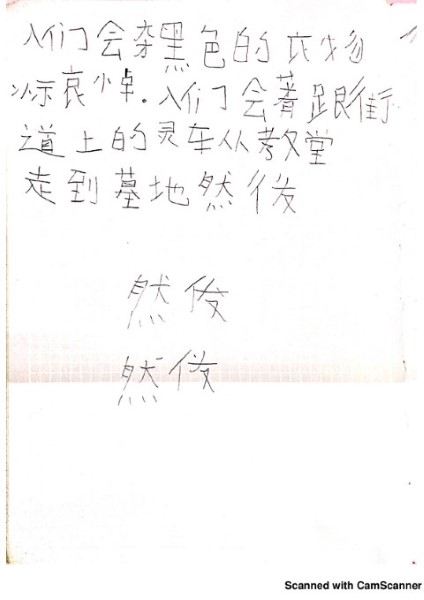 人们会穿黑色的衣物
以示哀悼.人们会着跟街
道上的灵车从教堂
走到墓地然後
然後
然後
Scanned with CamScanner